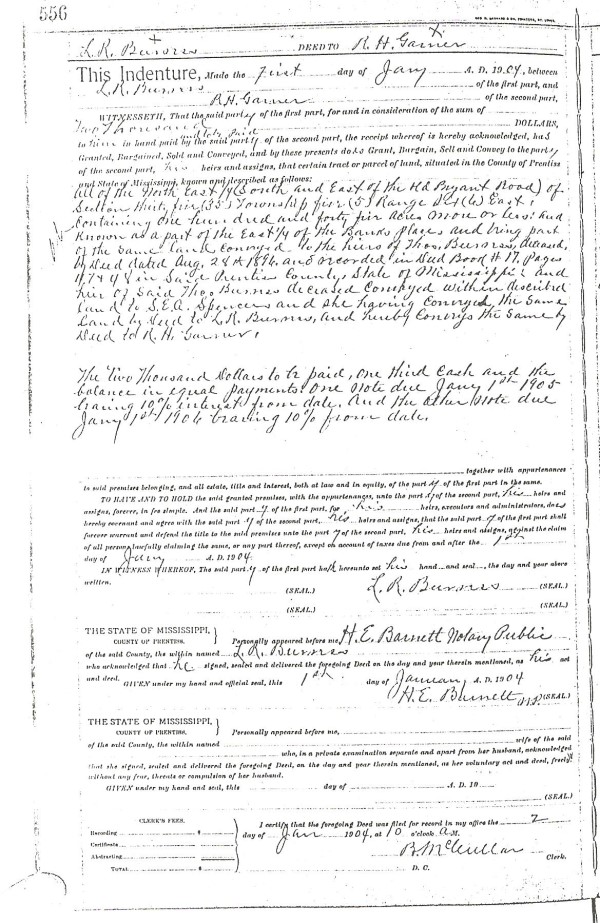 556
L. R. Burress DEED TO R. H. Garner
This Indenture, Made the First day of Jany A. D. 1904, between
L. R. Burress and of the first part, and
R. H. Garner of the second part,
WITNESSETH, That the said party of the first part, for and in consideration of the sum of
Two Thousand DOLLARS,
to be paid
to him in hand paid by the said party of the second part, the receipt whereof is hereby acknowledged, has
Granted, Bargained, Sold and Conveyed, and by these presents does Grant, Bargain, Sell and Convey to the party
of the second part, his heirs and assigns, that certain tract or parcel of land, situated in the County of Prentiss
and State of Mississippi, known and described as follows:
All of the North East 1/4 (South and East of the Old Bryant Road) of
Section thirty five (35) Township five (5) Range (6) East,
containing one hundred and forty five acres more or less: and
Known as a part of the East 1/4 of the Banks places and being part
of the same land conveyed to the heirs of Thos. Burress, deceased,
by Deed dated Aug. 28th 1896, and recorded in Deed Book # 17, Pages
in Said Prentiss County, State of Mississippi: and
heir of Said Thos. Burress deceased Conveyed within described
land to S. E. A. Spencers and she having Conveyed the Same
Land by Deed to L. R. Burress, and hereby Conveys the Same by
Deed to R. H. Garner.
The Two Thousand Dollars to be paid, one third Cash and the
balance in equal payments. One note due Jany 1st 1905
bearing 10% interest from date. And the other note due
Jany 1st 1906 bearing 10% from date.
together with appurtenances
to said premises belonging, and all estate, title and interest, both at law and in equity, of the party of the first part in the same.
TO HAVE AND TO HOLD the said granted premises, with the appurtenances, unto the party of the second part, his heirs and
assigns, forever, in fee simple. And the said party of the first part, for his heirs, executors and administrators, does
hereby covenant and agree with the said party of the second part, his heirs and assigns, that the said party of the first part shall
forever warrant and defend the title to the said premises unto the party of the second part, his heirs and assigns, against the claim
of all persons lawfully claiming the same, or any part thereof, except on account of taxes due from and after the 1st
day of Jany A. D. 1904.
IN WITNESS WHEREOF, The said party of the first part hath hereunto set his hand and seal, the day and year above
written.
L. R. Burress (SEAL.)
(SEAL.)
(SEAL.) (SEAL.)
THE STATE OF MISSISSIPPI,
COUNTY OF PRENTISS. Personally appeared before me, H. E. Barnett Notary Public
of the said County, the within named L. R. Burress
who acknowledged that he signed, sealed and delivered the foregoing Deed on the day and year therein mentioned, as his act
and deed.
GIVEN under my hand and official seal, this 1st day of January A. D. 1904
H. E. Barnett N.P. (SEAL.)
THE STATE OF MISSISSIPPI,
COUNTY OF PRENTISS. Personally appeared before me,
of the said County, the within named wife of the said
who, in a private examination separate and apart from her husband, acknowledged
that she signed, sealed and delivered the foregoing Deed, on the day and year therein mentioned, as her voluntary act and deed, freely
without any fear, threats or compulsion of her husband.
GIVEN under my hand and seal, this day of A. D. 19
(SEAL.)
CLERK'S FEES.
Recording $
Certificate
Abstracting
TOTAL $
I certify that the foregoing Deed was filed for record in my office the 2
day of Jan 1904, at 10 o'clock A M.
B. McClellan Clerk.
D. C.